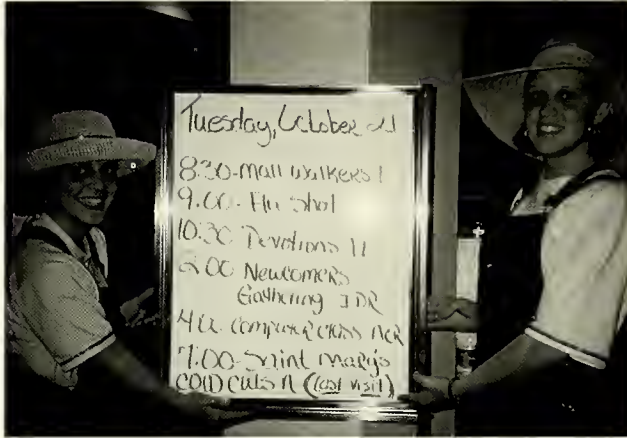 Tuesday, October
8:30-Mall Walkers
9:00- Flu Shot
10:30 Devotions
2:00 Newcomers
Gathering
Computer class
7:00-Saint Mary's
COLD CUTS (last visit)